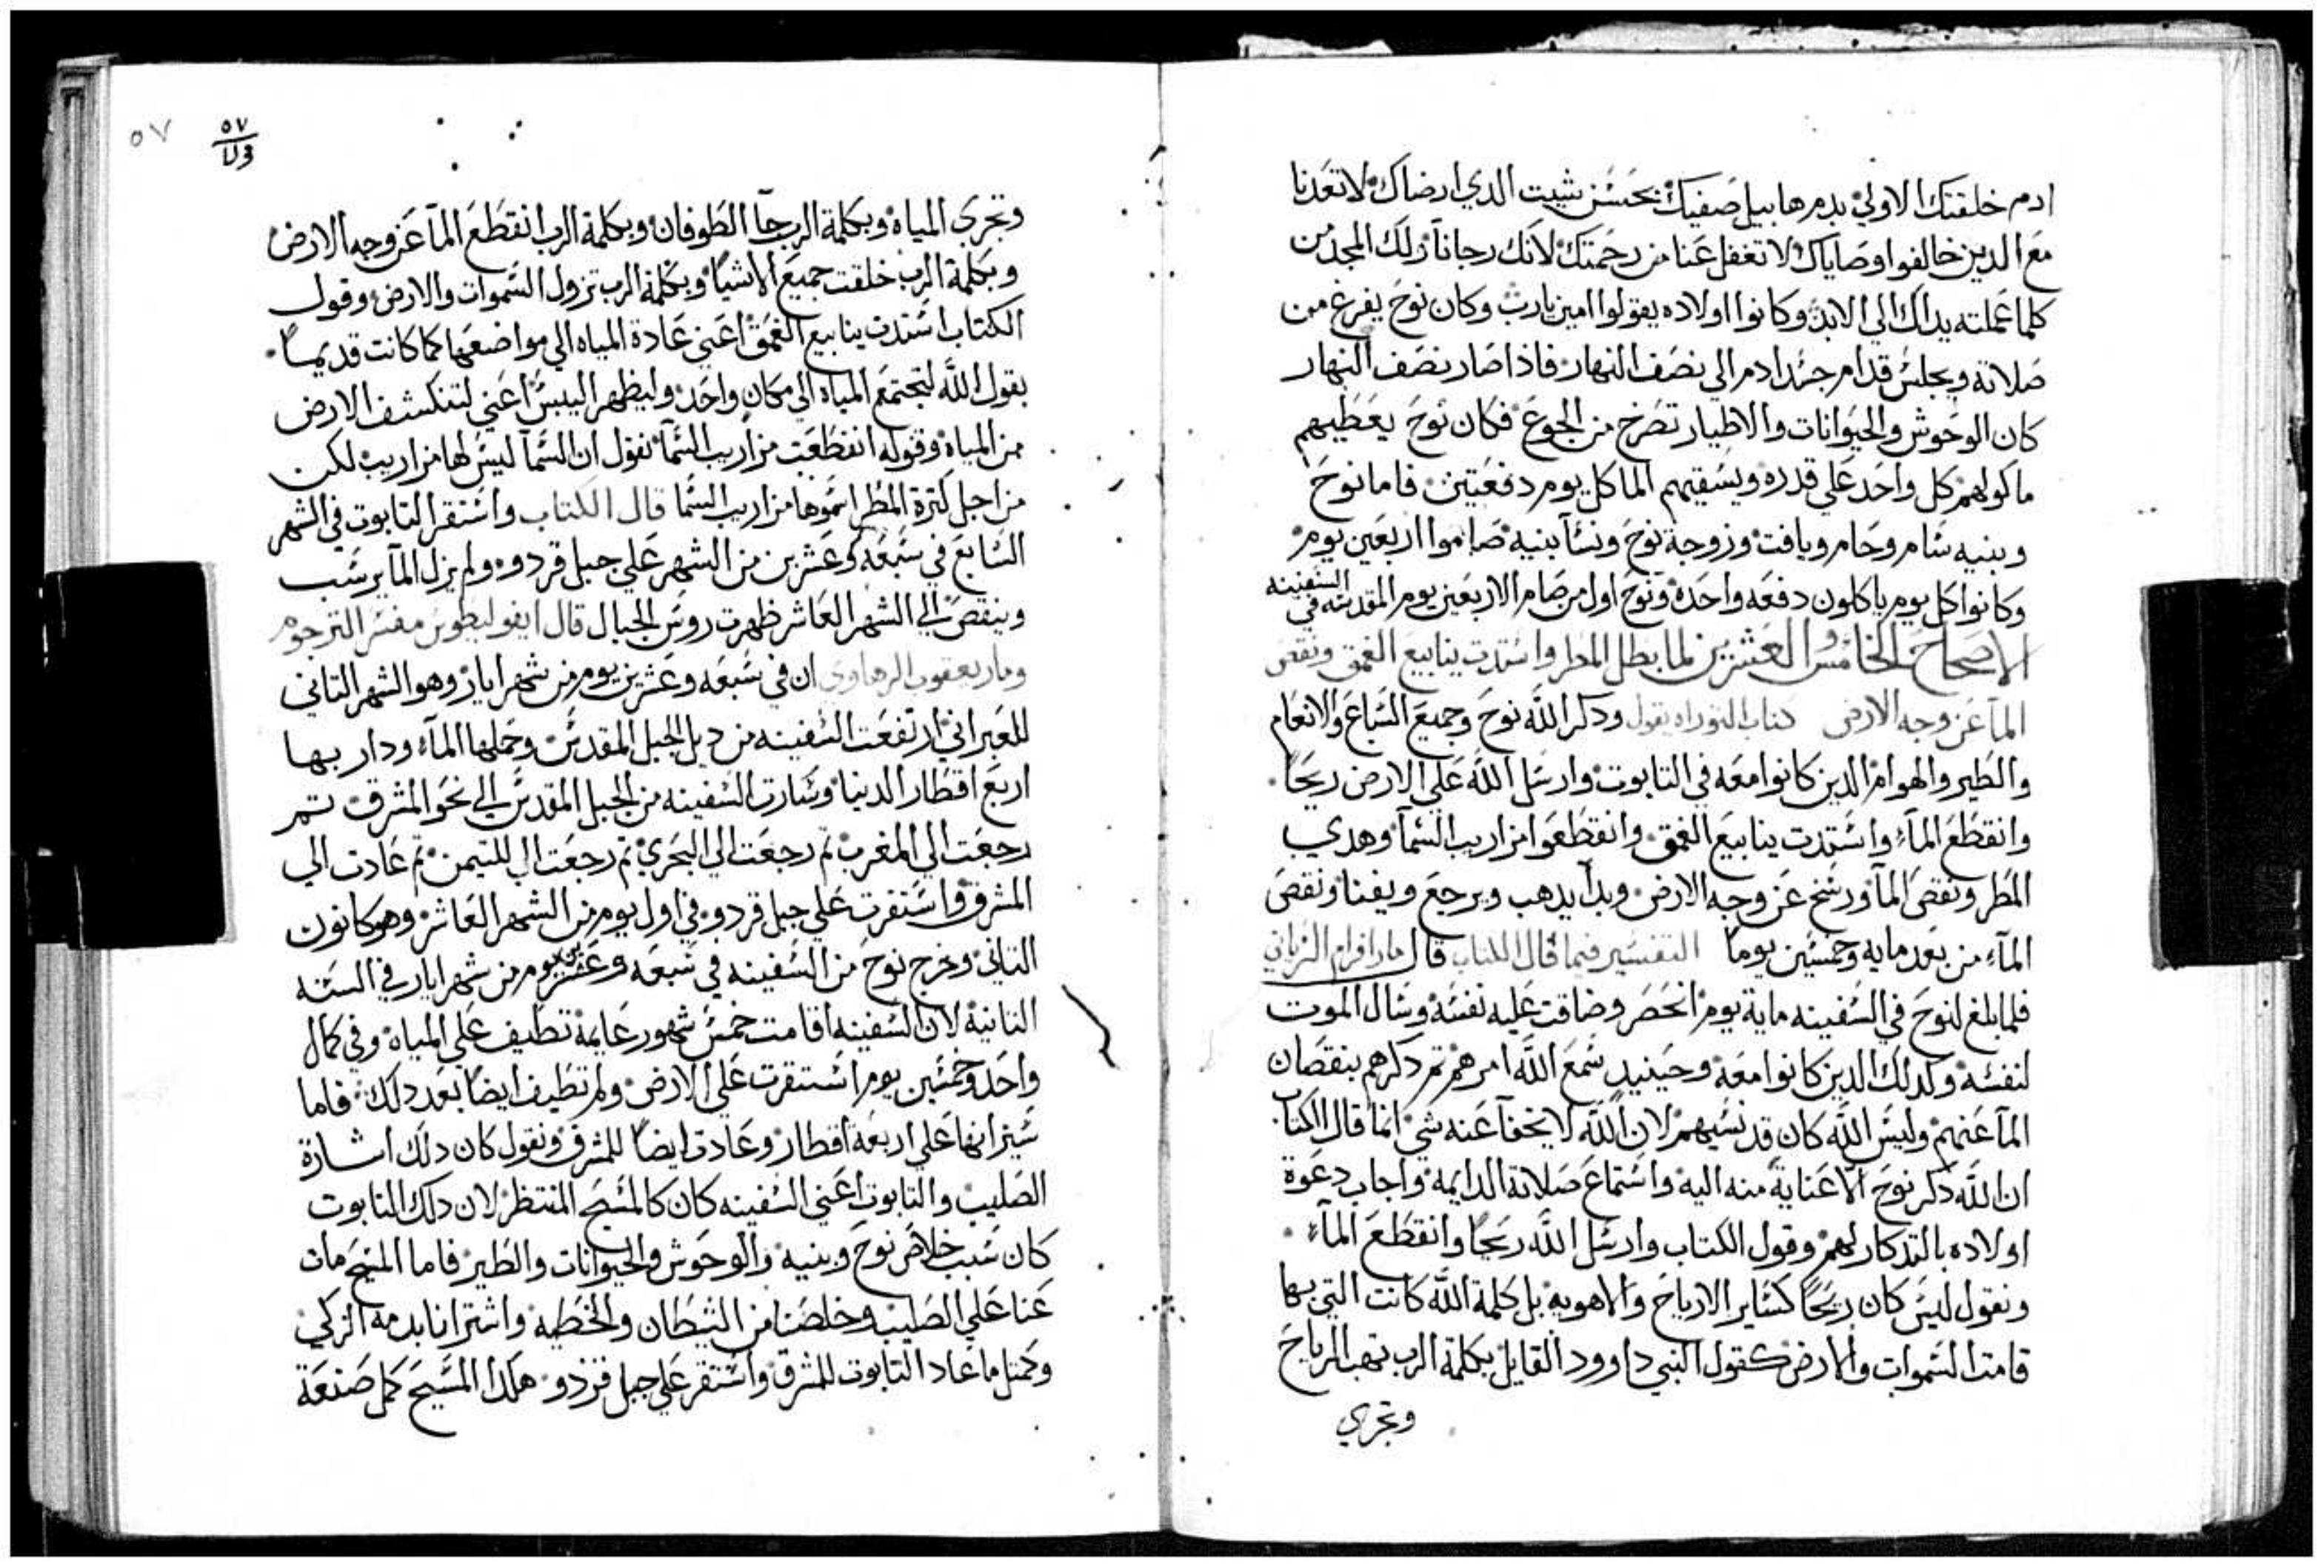 ادم خلقتك الاولي بدم هابيل صفيك بحسن شيت الدي ارضاك لا تعدنا
مع الدين خالفوا وصاياك لا تغفل عنا من رحمتك لانك رجانا ولك المجد من
كلما عملته يداك الي الابد وكانوا اولاده يقولوا امين يارب وكان نوح يفرغ من
صلاته ويجلس قدام جسد ادم الي نصف النهار فاذا صار نصف النهار
كان الوحوش والحيوانات والاطيار تصرخ من الجوع فكان نوح يعطيهم
ماكولهم كل واحد علي قدره ويسقيهم الما كل يوم دفعتين فاما نوح
وبنيه سام وحام ويافت وزوجة نوح ونسآ بنيه صاموا اربعين يوم
وكانوا كل يوم ياكلون دفعه واحده ونوح اول من صام الاربعين يوم المقدسه في السفينه
الاصحاح الخامس والعشرين لما بطل المطر واستدت ينابيع الغمق ونقص
المآ عن وجه الارض كتاب التوراه يقول ودكر الله نوح وجميع السباع والانعام
والطير والهوام الدين كانوا معه في التابوت وارسل الله علي الارض ريحاً
وانقطع المآء واستدت ينابيع الغمق وانقطعوا مزاريب السمآ وهدي
المطر ونقص المآ ورسخ عن وجه الارض وبدا يدهب ويرجع ويفنا ونقص
المآء من بعد مايه وخمسين يوماً التفسير فيما قال الكتاب قال مار افرام السرياني
فلما بلغ لنوح في السفينه ماية يوم انحصر وضاقت عليه نفسه وسال الموت
لنفسه وكدلك الدين كانوا معه وحينيد سمع الله امرهم تم دكرهم بنقصان
المآ عنهم وليس الله كان قد نسيهم لان الله لا يخفآ عنه شي انما قال الكتاب
ان الله دكر نوح الا عناية منه اليه واستماع صلاته الدايمه واجاب دعوة
اولاده بالتدكار لهم وقول الكتاب وارسل الله ريحاً وانقطع المآء
ونقول ليس كان ريحاً كساير الارياح والاهويه بل كلمة الله كانت التي بها
قامت السموات والارض كقول النبي داوود القايل بكلمة الرب تهب الرياح
وتجري
٥٧
٥٧
وتجري المياه وبكلمة الرب جآ الطوفان وبكلمة الرب انقطع المآ عن وجه الارض
وبكلمة الرب خلقت جميع الاشيا وبكلمة الرب تزول السموات والارض وقول
الكتاب استدت ينابيع الغمق اعني عادة المياه الي مواضعها كما كانت قديماً
بقول الله لتجتمع المياه الي مكان واحد وليظهر اليبس اعني لتنكشف الارض
من المياه وقوله انقطعت مزاريب السمآ نقول ان السمآ ليس لها مزاريب لكن
من اجل كترة المطر اسموها مزاريب السما قال الكتاب واستقر التابوت في الشهر
السابع في سبعه وعشرين من الشهر علي جبل قردوه ولم يزل المآ يرسب
وينقص الي الشهر العاشر ظهرت روس الجبال قال ايفوليطوس مفسر الترجوم
ومار يعقوب الرهاوي ان في سبعه وعشرين يوم من شهر ايار وهو الشهر التاني
للعبراني ارتفعت السفينه من ديل الجبل المقدس وحملها المآء ودار بها
اربع اقطار الدنيا وسارت السفينه من الجبل المقدس الي نحو المشرق تم
رجعت الي المغرب تم رجعت الي البحري تم رجعت الي للتيمن تم عادت الي
المشرق واستقرت علي جبل قردوه في اول يوم من الشهر العاشر وهو كانون
التاني وخرج نوح من السفينه في سبعه وعشرين يوم من شهر ايار في السنه
التانيه لان السفينه اقامت خمس شهور عايمه تطيف علي المياه وفي كمال
واحد وخمسين يوم استقرت علي الارض ولم تطيف ايضا بعد دلك فاما
سيرانها علي اربعة اقطار وعادت ايضاً للمشرق ونقول كان دلك اشارة
الصليب والتابوت اعني السفينه كان كالمسيح المنتظر لان دلك التابوت
كان سبب خلاص نوح وبنيه والوحوش والحيوانات والطير فاما المسيح مات
عنا علي الصليب وخلصنا من الشيطان والخطيه واشترانا بدمه الزكي
وكمتل ما عاد التابوت للمشرق واستقر علي جبل قردو هكدا المسيح كمل صنعة